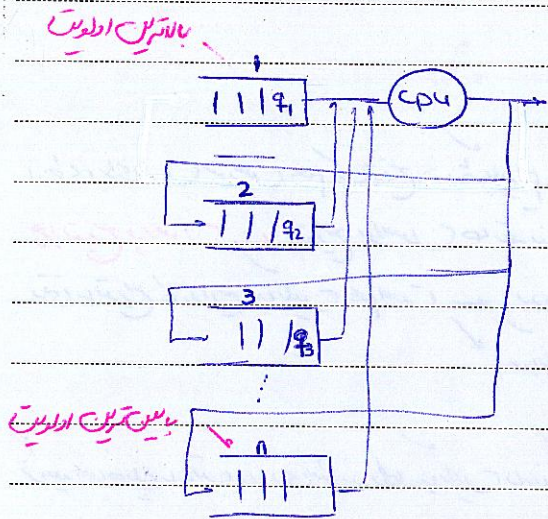 بالاترین اولویت
1
q1
cpu
2
q2
3
q3
⋮
پایین ترین اولویت
n